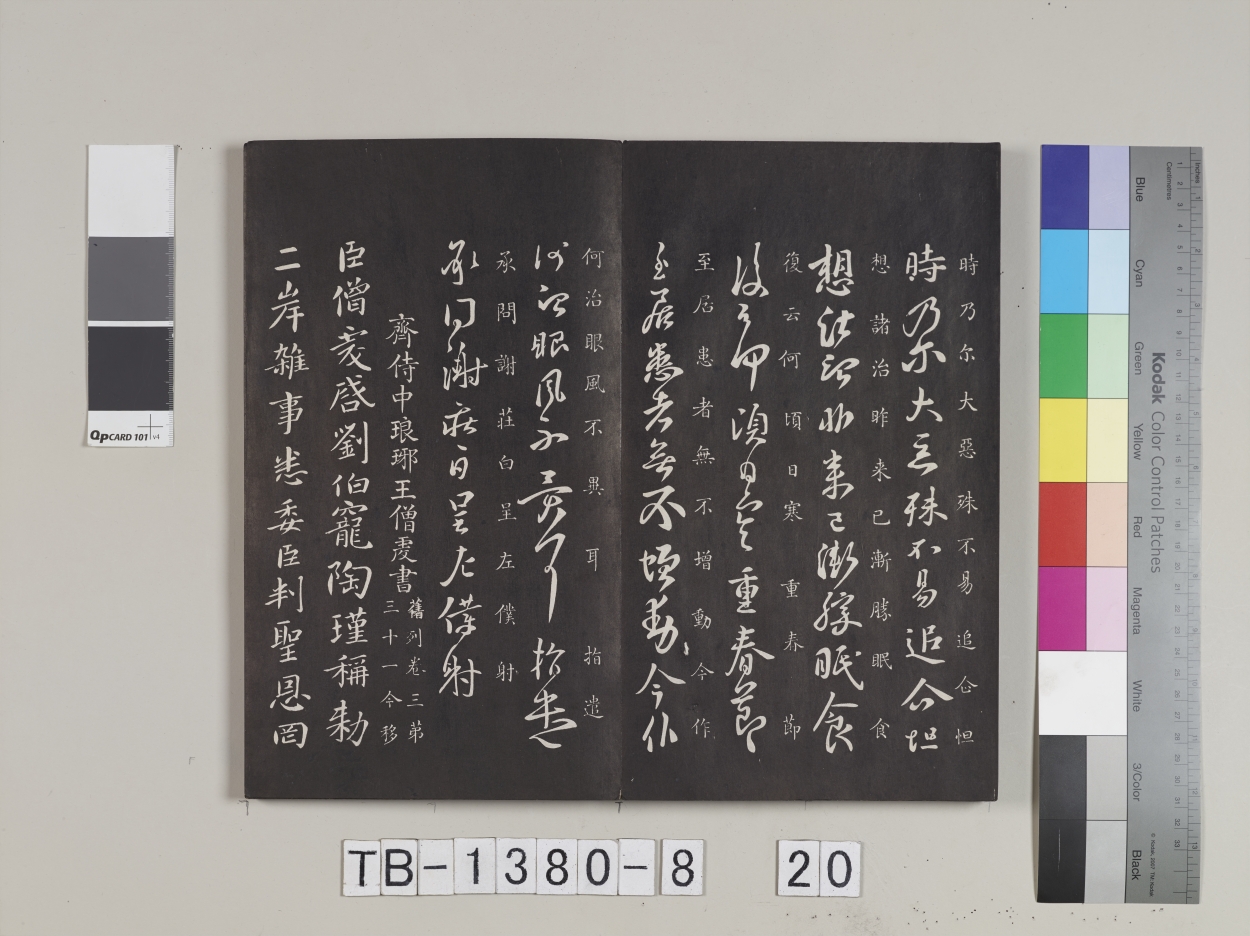 時乃尓大惡殊不易追企怛
時乃尓大惡殊不易追企怛
想諸治昨来已漸勝眠食
想諸治昨来已漸勝眠食
復云何頃日寒重春節
復云何頃日寒重春節
至居患者無不增動今作
至居患者無不增動今作
何治眼風不異耳指遣
何治眼風不異耳指遣
承問謝莊白呈左僕射
承問謝莊白呈左僕射
齊侍中琅琊王僧虔書
舊列卷三弟
三十一今移
臣僧虔啓劉伯寵陶瑾稱勑
二岸雜事悉委臣判聖恩罔
QPCARD 101 v4
TB-1380-8 20
Kodak Color Control Patches
Blue
Cyan
Green
Yellow
Red
Magenta
White
3/Color
Black
Inches
Centimetres